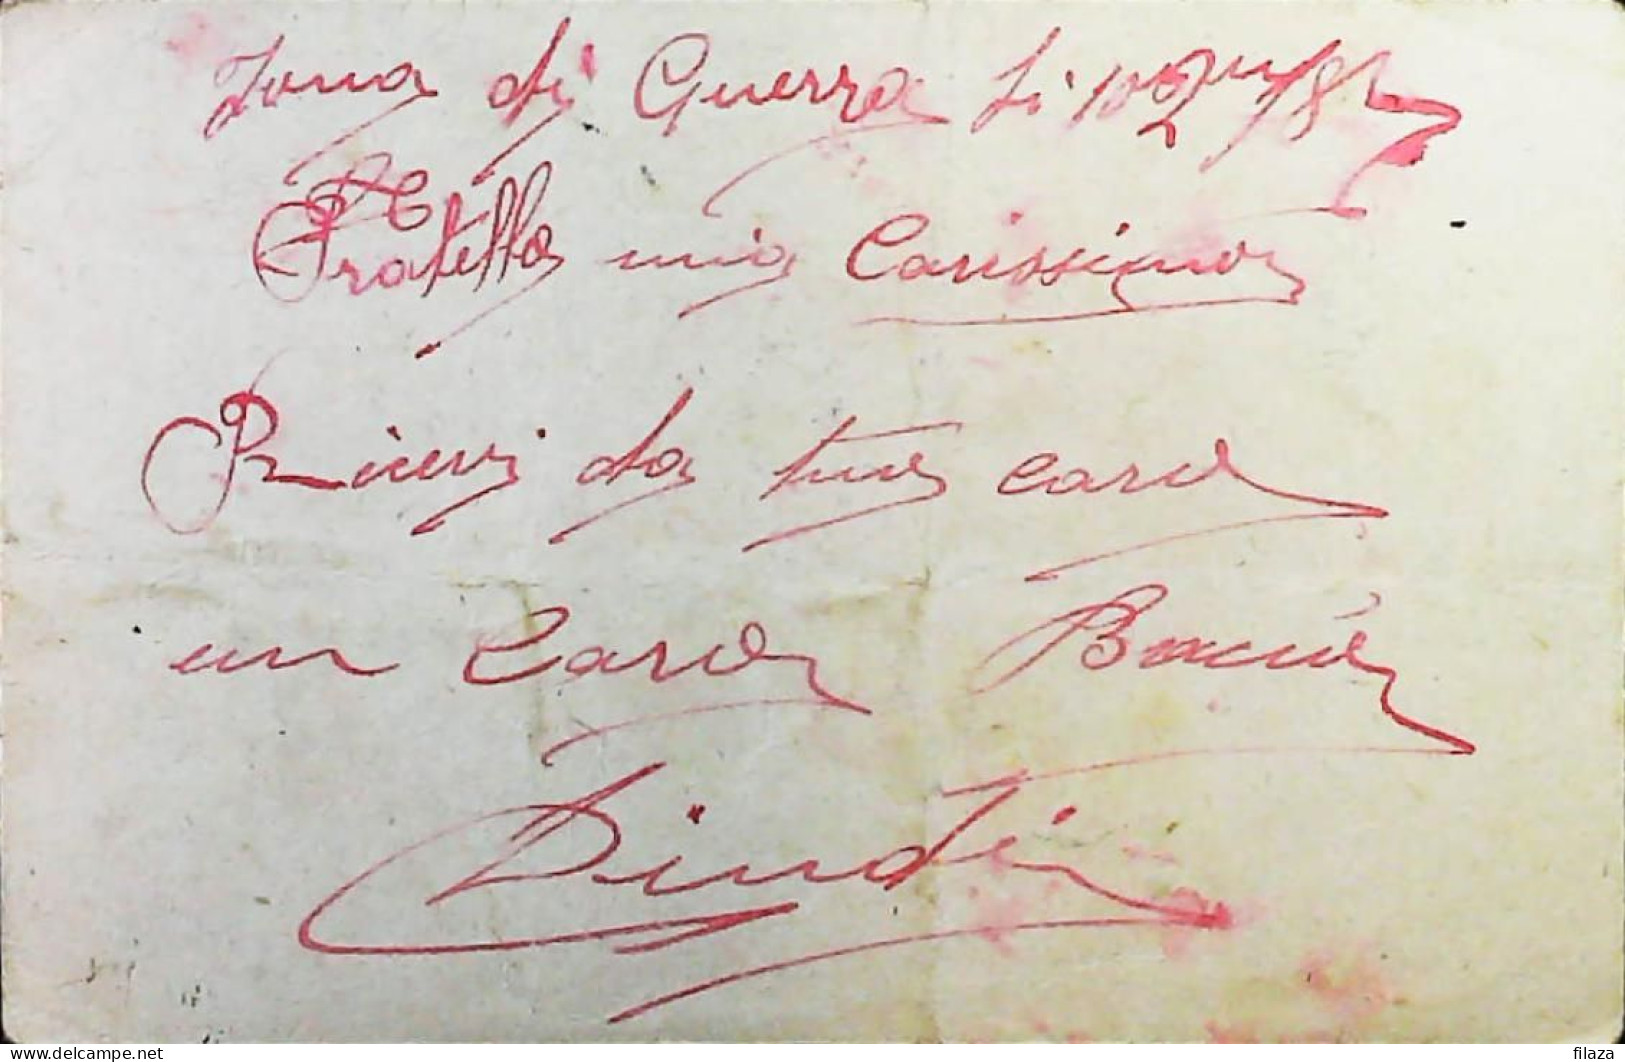 Zona di Guerra li 10
Fratello mio Carissimo
Ricevi da tuo caro
un caro Bacio
filaza
delcampe.net